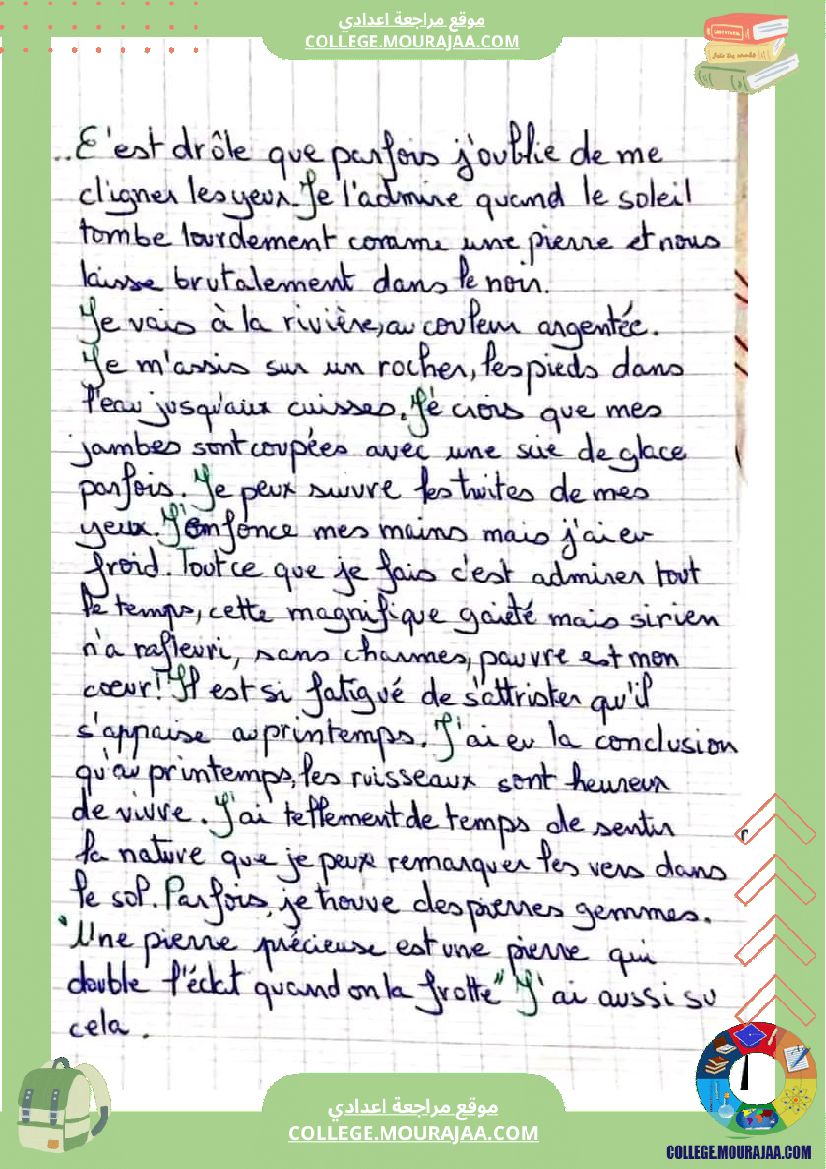 موقع مراجعة اعدادي
COLLEGE.MOURAJAA.COM
..C'est drôle que parfois j'oublie de me
cligner les yeux. Je l'admire quand le soleil
tombe lourdement comme une pierre et nous
laisse brutalement dans le noir.
Je vais à la rivière, au couleur argentée.
Je m'assis sur un rocher, les pieds dans
l'eau jusqu'aux cuisses. Jé crois que mes
jambes sont coupées avec une sie de glace
parfois. Je peux suivre les truites de mes
yeux. J'enfonce mes mains mais j'ai eu
froid. Tout ce que je fais c'est admirer tout
le temps, cette magnifique gaieté mais si rien
n'a rafleuri, sans charmes, pauvre est mon
cœur! Il est si fatigué de s'attrister qu'il
s'appaise au printemps. J'ai eu la conclusion
qu'au printemps, les ruisseaux sont heureux
de vivre. J'ai tellement de temps de sentir
la nature que je peux remarquer les vers dans
le sol. Parfois, je trouve des pierres gemmes.
"Une pierre précieuse est une pierre qui
double l'éclat quand on la frotte" J'ai aussi su
cela.
موقع مراجعة اعدادي
COLLEGE.MOURAJAA.COM
1
COLLEGE.MOURAJAA.COM